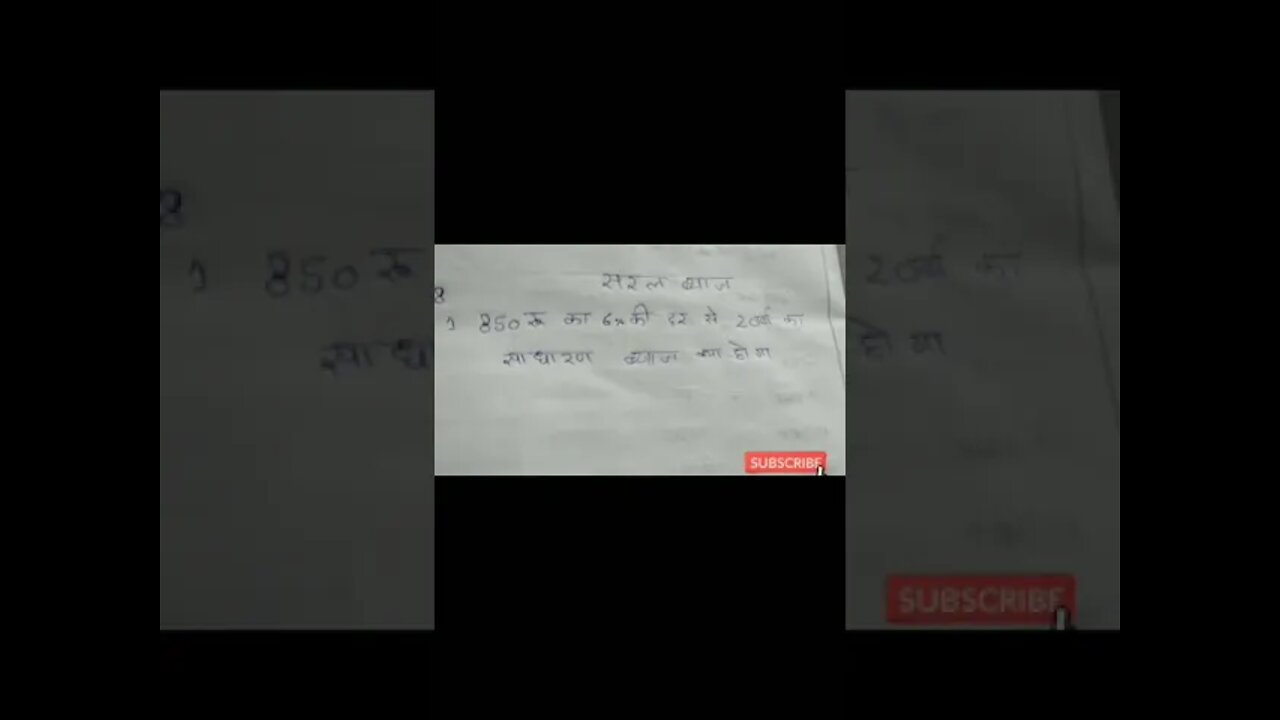 सरल ब्याज
8
1 850 रू का 6% की दर से 20वर्ष का
साधारण ब्याज क्या होगा
SUBSCRIBE